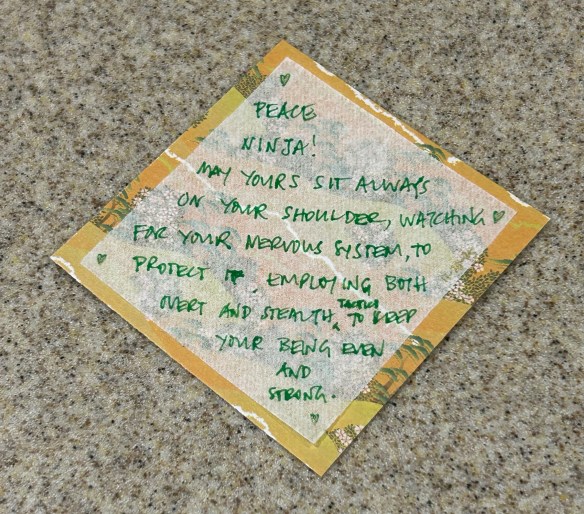 PEACE
NINJA!
MAY YOURS SIT ALWAYS
ON YOUR SHOULDER, WATCHING
FOR YOUR NERVOUS SYSTEM, TO
PROTECT IT, EMPLOYING BOTH
OVERT AND STEALTH TACTICS TO KEEP
YOUR BEING EVEN
AND
STRONG.